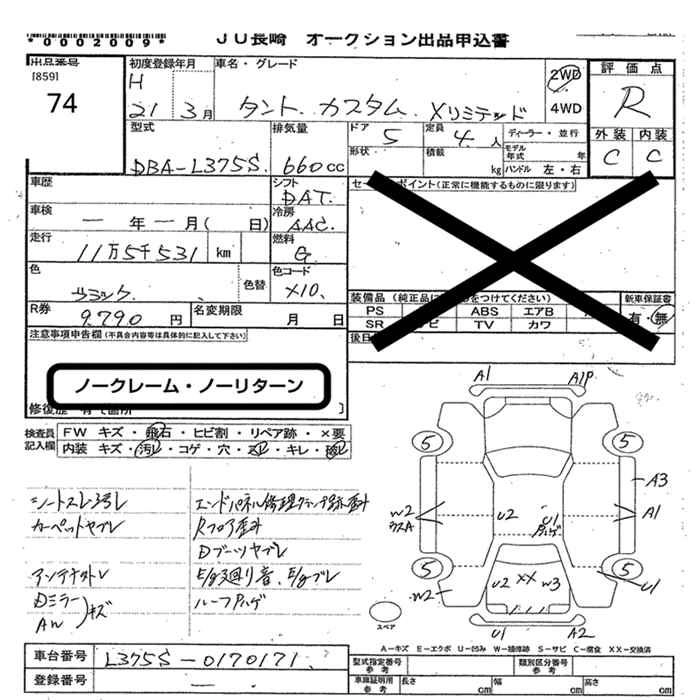 *0002009*
JU長崎 オークション出品申込書
出品番号
[859]
74
初度登録年月
H
21 3月
車名・グレード
タント カスタム Xリミテッド
2WD
4WD
評価点
R
外装 内装
C C
型式
DBA-L375S
排気量
660cc
ドア
5
形状
定員
4人
積載
kg
ディーラー・並行
モデル年式 年
ハンドル 左・右
車歴
シフト
DAT
セールスポイント(正常に機能するものに限ります)
車検
ー年ー月( 日)
冷房
AAC
走行
11万5千531 km
燃料
G
色
色替
色コード
X10
装備品 (純正品に をつけてください)
PS ABS エアB
SR TV カワ
新車保証書
有・無
R券
9,790 円
名変期限
月 日
後日
注意事項申告欄(不具合内容等は具体的に記入して下さい)
ノークレーム・ノーリターン
修復歴 有で箇所
検査員記入欄
FW キズ・飛石・ヒビ割・リペア跡・×要
内装 キズ・汚レ・コゲ・穴・スレ・キレ・破レ
カーペットヤブレ
Rフロア歪ミ
Dブーツヤブレ
Dミラー
AW
キズ
ルーフハゲ
A1 A1P
5 5
A3
A1
W2
U2
U1
ハゲ
5 5
U2 XX W3
W2
U1
U1 A2
スペア
A-キズ E-エクボ U-凹み W-補修跡 S-サビ C-腐食 XX-交換済
車台番号
L375S-0170171
登録番号
ー
型式指定番号
参考
類別区分番号
参考
車庫証明用
参考
長さ cm 幅 cm 高さ cm